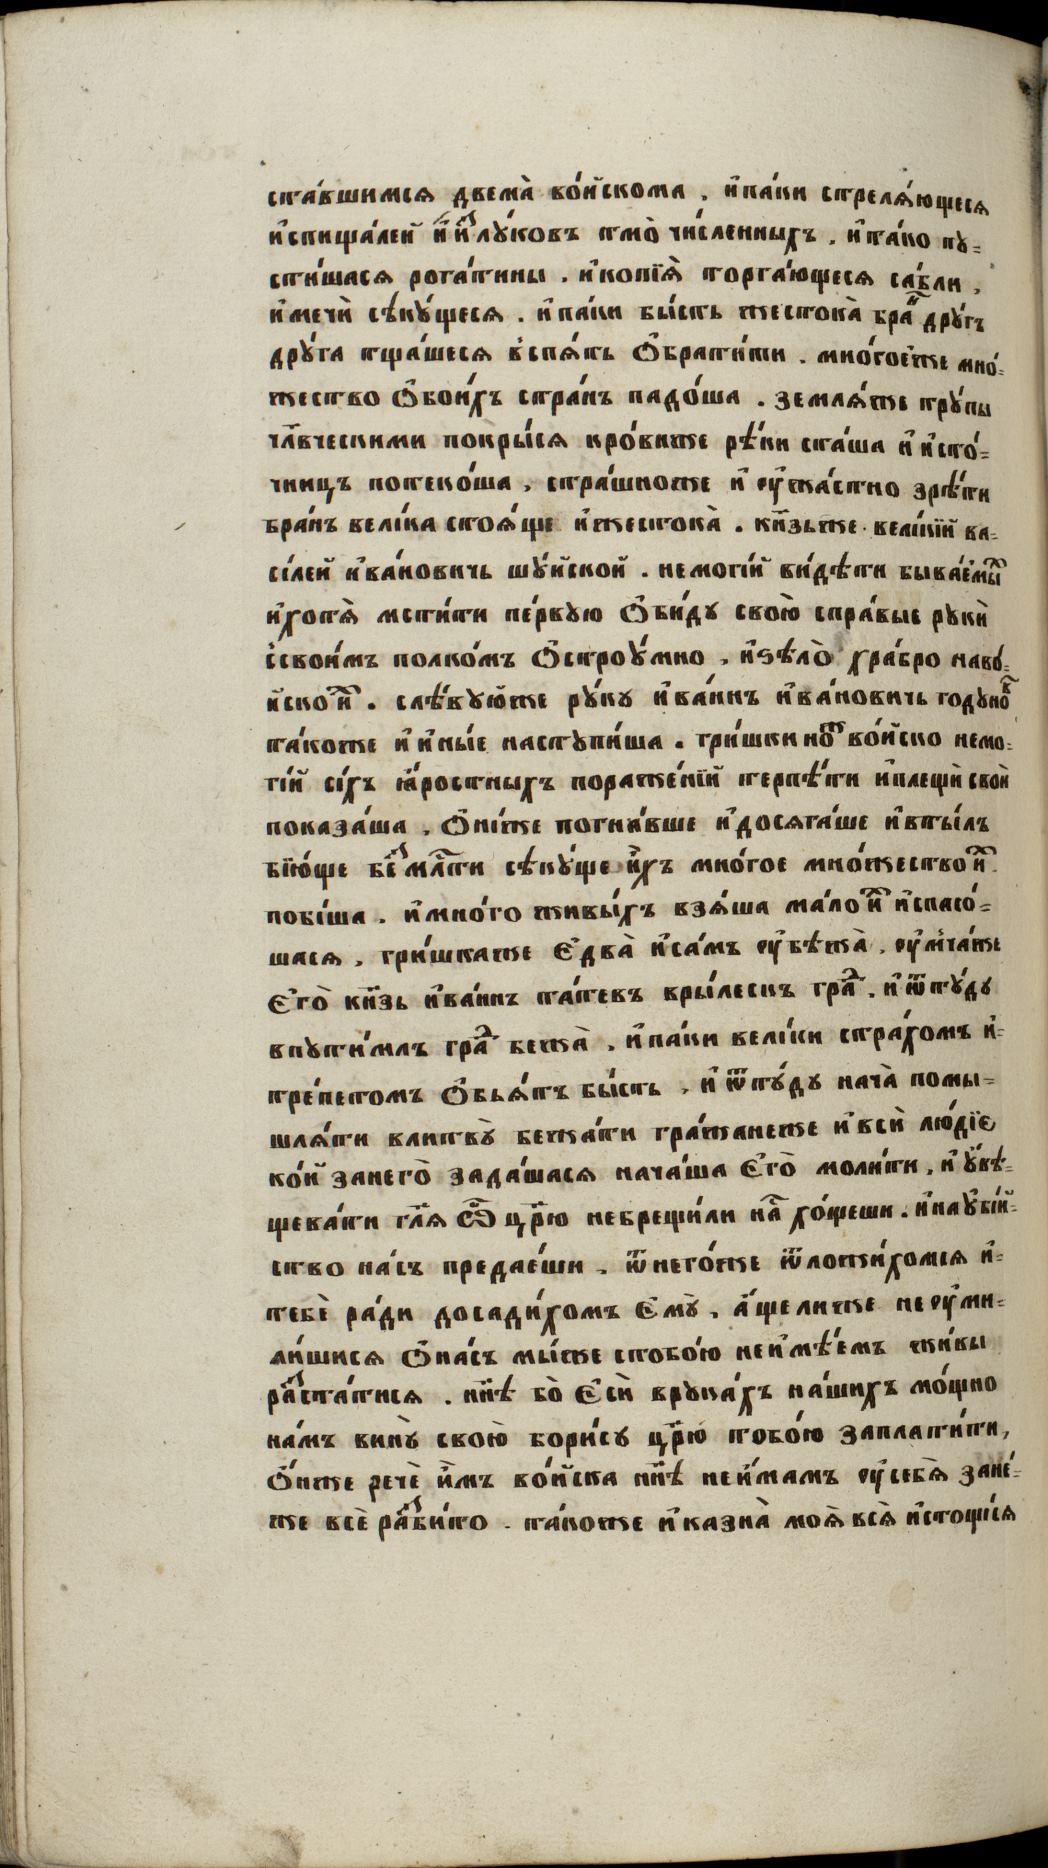 ста́вшимсѧ двема̀ во́йскома . и҆па́ки стрелѧ́ющесѧ
и҆спища́лей и҆и҆з̾ лу́ковъ тмо̀ чи́сленныхъ . и҆та́ко пу-
сти́шасѧ рога́тины . и҆копїѧ̀ торга́ющесѧ са́бли ,
и҆мечѝ сѣку́щесѧ . и҆па́ки бы́сть жестока̀ бра́н дру́гъ
дру́га тща́шесѧ вспѧ́ть ѻ҆брати́ти . мно́гоеже мно́-
жество ѻ҆бои́хъ стра́нъ падо́ша . землѧ́же тру́пы
чл҃вческими покры́сѧ кро́виже рѣ́ки ста́ша и҆ и҆сто́-
чницъ потеко́ша , стра́шноже и҆ ᲂу҆жа́стно зрѣ́ти
бра́нь вели́ка стоѧ́ще и҆жестока̀ . кн҃зьже вели́кїй ва-
сі́лей и҆ва́новичь шу́йской . немогі́й ви́дѣти быва́емы
и҆хотѧ̀ мсти́ти пе́рвую ѻ҆би́ду свою̀ спра́выѐ рукѝ
ссвои́мъ полко́мъ ѻ҆строу́мно , и҆ѕѣло̀ хра́бро наво́-
йско и҆х . слѣ́вуюже руку и҆ва́нъ и҆ва́новичь годуно́в
та́коже и҆ и҆ны́е наступи́ша . гри́шкино ж во́йско немо-
гі́й сі́хъ ꙗ҆́ростныхъ пораже́нїй терпѣ́ти и҆плещѝ своѝ
показа́ша , ѻ҆ні́же погна́вше и҆досѧга́ше и҆вты́лъ
бїю́ще без̾ мл҃сти сѣку́ще и҆́хъ мно́гое мно́жество и҆х
побі́ша . и҆мно́го живы́хъ взѧ́ша ма́ло и҆х и҆спасо́-
шасѧ , гри́шкаже є҆два̀ и҆са́мъ ᲂу҆бѣжа̀ , ᲂу҆мча́же
є҆го̀ кн҃зь и҆ва́нъ та́тевъ вры́лескъ гра́д . и҆ ѿту́ду
впути́млъ гра́д бежа̀ , и҆па́ки вели́ки стра́хомъ и҆-
тре́петомъ ѻ҆бьѧ́тъ бы́сть , и҆ ѿту́ду нача̀ помы-
шлѧ́ти влитву̀ бежа́ти гра́жанеже и҆всѝ лю́дїе
ко́й занего̀ зада́шасѧ нача́ша є҆го̀ моли́ти , и҆ ᲂу҆вѣ-
щева́ти гл҃ѧ ѽ цр҃ю небрещи́ли на́с хо́щеши . и҆наᲂу҆бі́й-
ство на́съ предае́ши . ѿнего́же ѿложи́хомсѧ и҆-
тебѐ ра́ди досади́хомъ є҆му̀ , а҆́щелиже не ᲂу҆ми-
ли́шисѧ ѻ҆на́съ мы́же стобо́ю неи҆мѣ́емъ жи́вы
раз̾ста́тисѧ . нн҃ѣ бо̀ є҆сѝ врука́хъ на́шихъ мо́щно
на́мъ вину̀ свою̀ бори́су цр҃ю тобо́ю заплати́ти ,
ѻ҆́нже речѐ и҆̀мъ во́йска нн҃ѣ неи҆́мамъ ᲂу҆себѧ̀ зане́-
же всѐ раз̾би́то . та́коже и҆казна̀ моѧ̀ всѧ̀ и҆стощи́сѧ